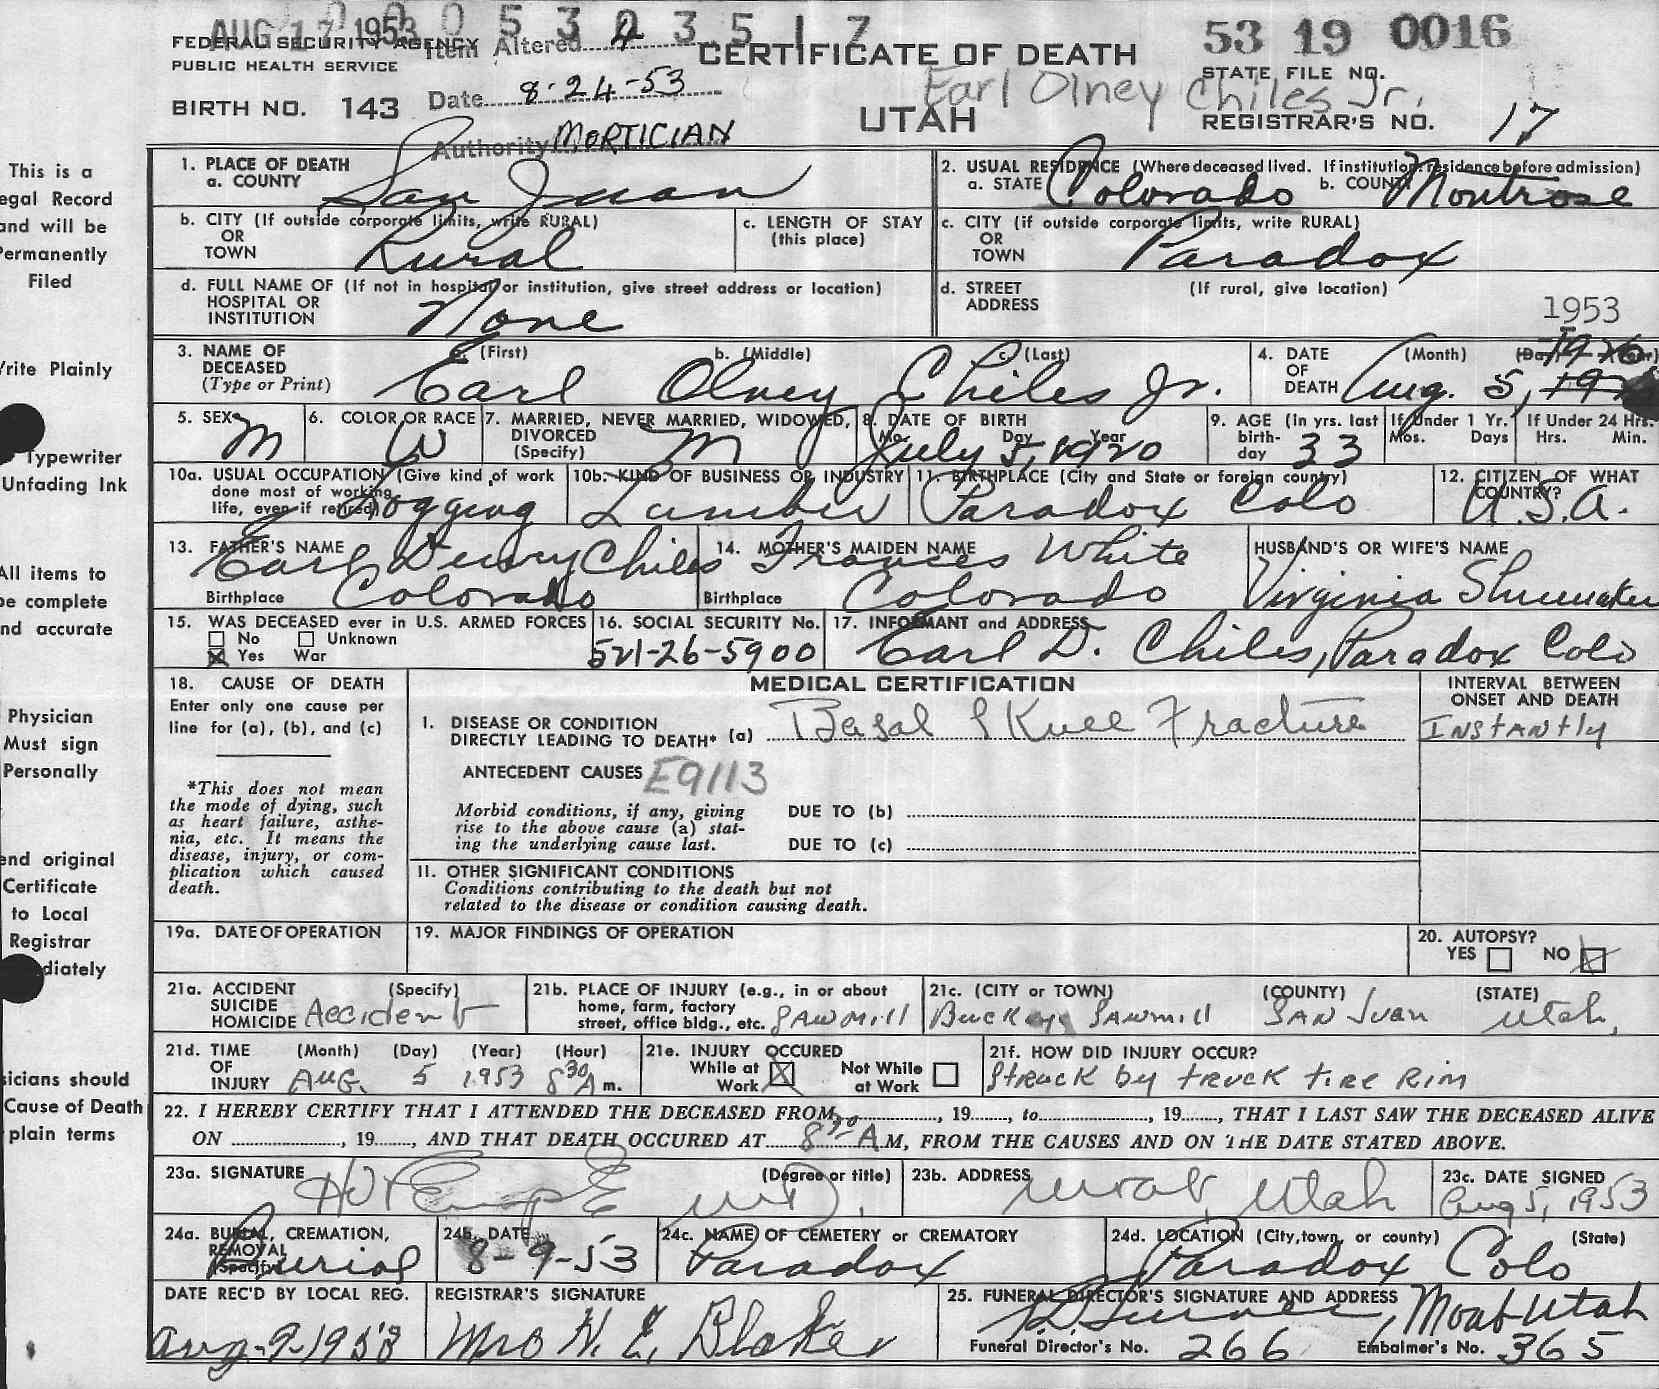 AUG 17 1953
0 0 0 5 3 0 2 3 5 1 7
53 19 0016
FEDERAL SECURITY AGENCY
PUBLIC HEALTH SERVICE
Item Altered 4
CERTIFICATE OF DEATH
STATE FILE NO.
BIRTH NO. 143
Date 8-24-53
Earl Olney Chiles Jr.
UTAH
REGISTRAR'S NO. 17
Authority MORTICIAN
This is a
egal Record
and will be
Permanently
Filed
1. PLACE OF DEATH
a. COUNTY San Juan
2. USUAL RESIDENCE (Where deceased lived. If institution, residence before admission)
a. STATE Colorado b. COUNTY Montrose
b. CITY (If outside corporate limits, write RURAL)
OR
TOWN Rural
c. LENGTH OF STAY
(this place)
c. CITY (if outside corporate limits, write RURAL)
OR
TOWN Paradox
d. FULL NAME OF (If not in hospital or institution, give street address or location)
HOSPITAL OR
INSTITUTION None
d. STREET (If rural, give location)
ADDRESS
1953
rite Plainly
3. NAME OF
DECEASED
(Type or Print)
a. (First) b. (Middle) c. (Last)
Earl Olney Chiles Jr.
4. DATE
OF
DEATH
(Month) (Day) (Year)
Aug. 5,
Typewriter
Unfading Ink
5. SEX M
6. COLOR OR RACE W
7. MARRIED, NEVER MARRIED, WIDOWED,
DIVORCED
(Specify) M
8. DATE OF BIRTH
Mo. Day Year
July 5, 1920
9. AGE (In yrs. last
birth-
day 33
If Under 1 Yr.
Mos. Days
If Under 24 Hrs.
Hrs. Min.
10a. USUAL OCCUPATION (Give kind of work
done most of working
life, even if retired) Logging
10b. KIND OF BUSINESS OR INDUSTRY
Lumber
11. BIRTHPLACE (City and State or foreign country)
Paradox Colo
12. CITIZEN OF WHAT
COUNTRY?
U.S.A.
All items to
be complete
nd accurate
13. FATHER'S NAME
Earl Dewey Chiles
Birthplace Colorado
14. MOTHER'S MAIDEN NAME
Frances White
Birthplace Colorado
HUSBAND'S OR WIFE'S NAME
Virginia Shumaker
15. WAS DECEASED ever in U.S. ARMED FORCES
No Unknown
Yes War
16. SOCIAL SECURITY No.
521-26-5900
17. INFORMANT and ADDRESS
Earl D. Chiles, Paradox Colo
Physician
Must sign
Personally
18. CAUSE OF DEATH
Enter only one cause per
line for (a), (b), and (c)
*This does not mean
the mode of dying, such
as heart failure, asthe-
nia, etc. It means the
disease, injury, or com-
plication which caused
death.
MEDICAL CERTIFICATION
INTERVAL BETWEEN
ONSET AND DEATH
Instantly
I. DISEASE OR CONDITION
DIRECTLY LEADING TO DEATH* (a) Basal Skull Fracture
ANTECEDENT CAUSES E9113
Morbid conditions, if any, giving
rise to the above cause (a) stat-
ing the underlying cause last.
DUE TO (b)
DUE TO (c)
II. OTHER SIGNIFICANT CONDITIONS
Conditions contributing to the death but not
related to the disease or condition causing death.
end original
Certificate
to Local
Registrar
diately
19a. DATE OF OPERATION
19. MAJOR FINDINGS OF OPERATION
20. AUTOPSY?
YES NO
21a. ACCIDENT (Specify)
SUICIDE
HOMICIDE Accident
21b. PLACE OF INJURY (e.g., in or about
home, farm, factory
street, office bldg., etc. Sawmill
21c. (CITY or TOWN) (COUNTY) (STATE)
Buckeye Sawmill San Juan Utah,
21d. TIME (Month) (Day) (Year) (Hour)
OF
INJURY Aug. 5 1953 8 30 A m.
21e. INJURY OCCURED
While at
Work
Not While
at Work
21f. HOW DID INJURY OCCUR?
Struck by truck tire rim
sicians should
Cause of Death
plain terms
22. I HEREBY CERTIFY THAT I ATTENDED THE DECEASED FROM, 19, to, 19, THAT I LAST SAW THE DECEASED ALIVE
ON, 19, AND THAT DEATH OCCURED AT 8 30 A M, FROM THE CAUSES AND ON THE DATE STATED ABOVE.
23a. SIGNATURE (Degree or title)
MD.
23b. ADDRESS
Moab, Utah
23c. DATE SIGNED
Aug 5, 1953
24a. BURIAL, CREMATION,
REMOVAL
(Specify) Burial
24b. DATE
8-9-53
24c. NAME OF CEMETERY OR CREMATORY
Paradox
24d. LOCATION (City, town, or county) (State)
Paradox Colo
DATE REC'D BY LOCAL REG.
Aug-9-1953
REGISTRAR'S SIGNATURE
Mrs H. E. Blake
25. FUNERAL DIRECTOR'S SIGNATURE AND ADDRESS
Moab Utah
Funeral Director's No. 266 Embalmer's No. 365